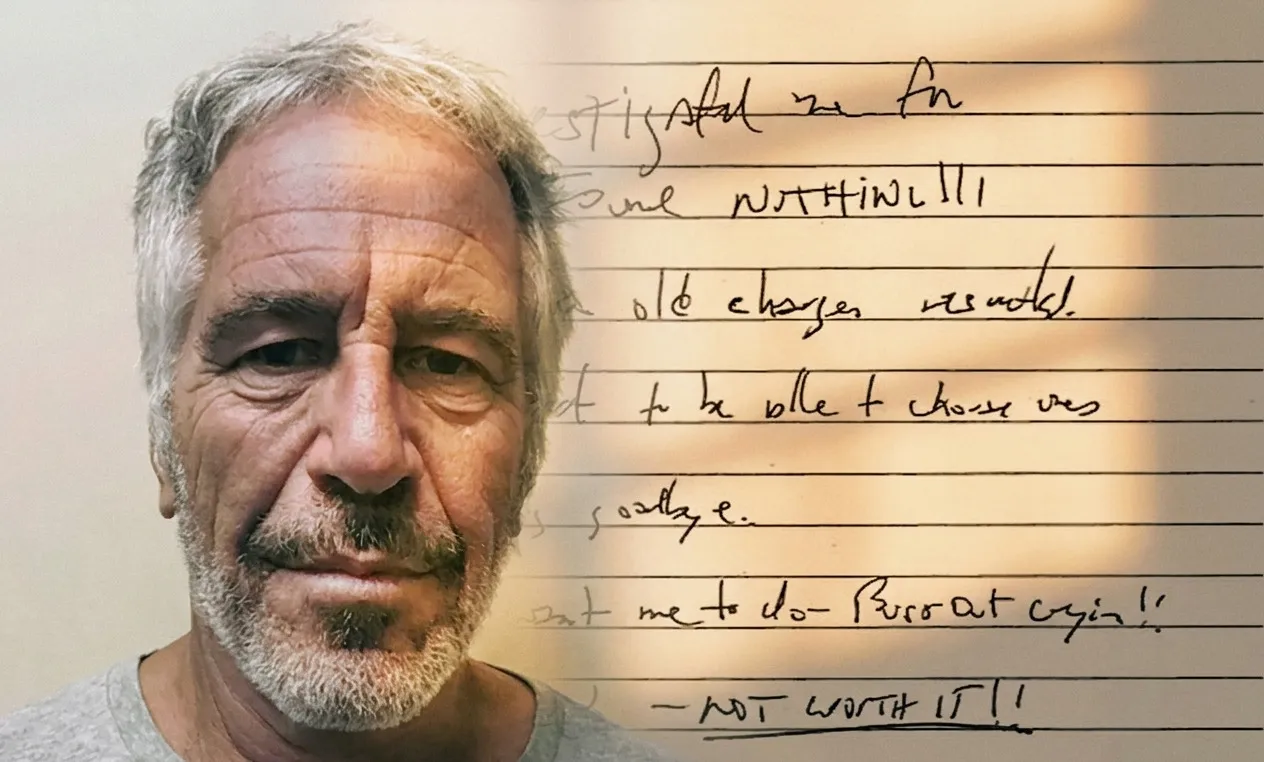 estigated me for
NOTHING!!!
old charges resulted.
to be able to choose ones
goodbye.
me to do - Burst out cryin!!
- NOT WORTH IT!!